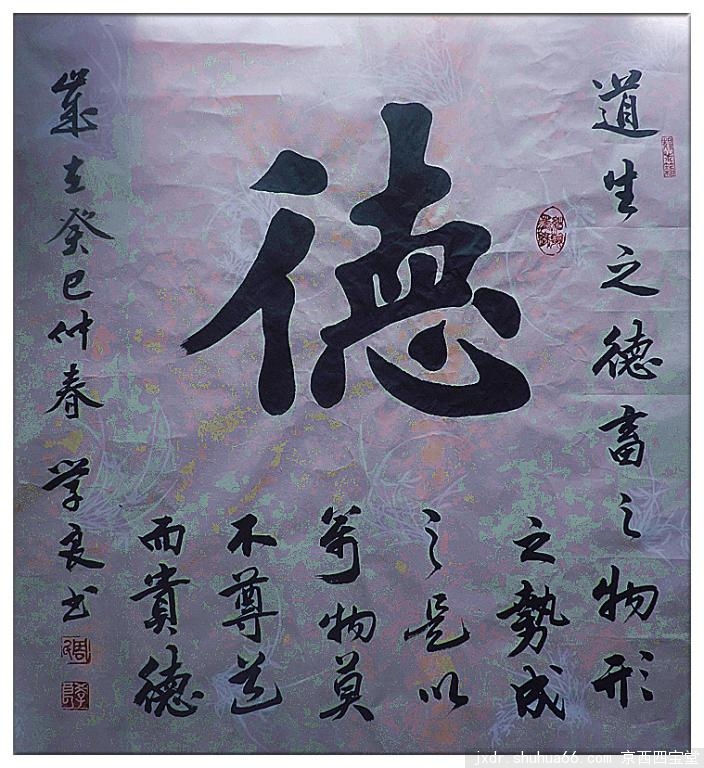 德
道生之德畜之物形
之勢成
之是以
萬物莫
不尊道
而貴德
歲在癸巳仲春 学良书
jxdr.shuhua66.com 京西四宝堂